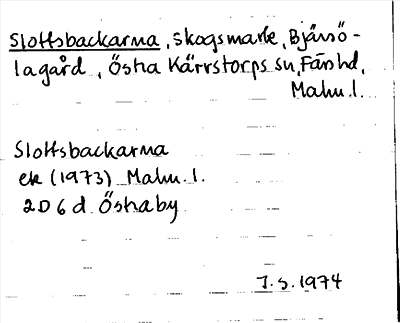 Slottsbackarna, skogsmark, Bjärsjö-
lagård, Östra Kärrstorps sn, Färs hd,
Malm. l.
Slottsbackarna
ek (1973) Malm. l.
2D 6d Östraby
J. S. 1974